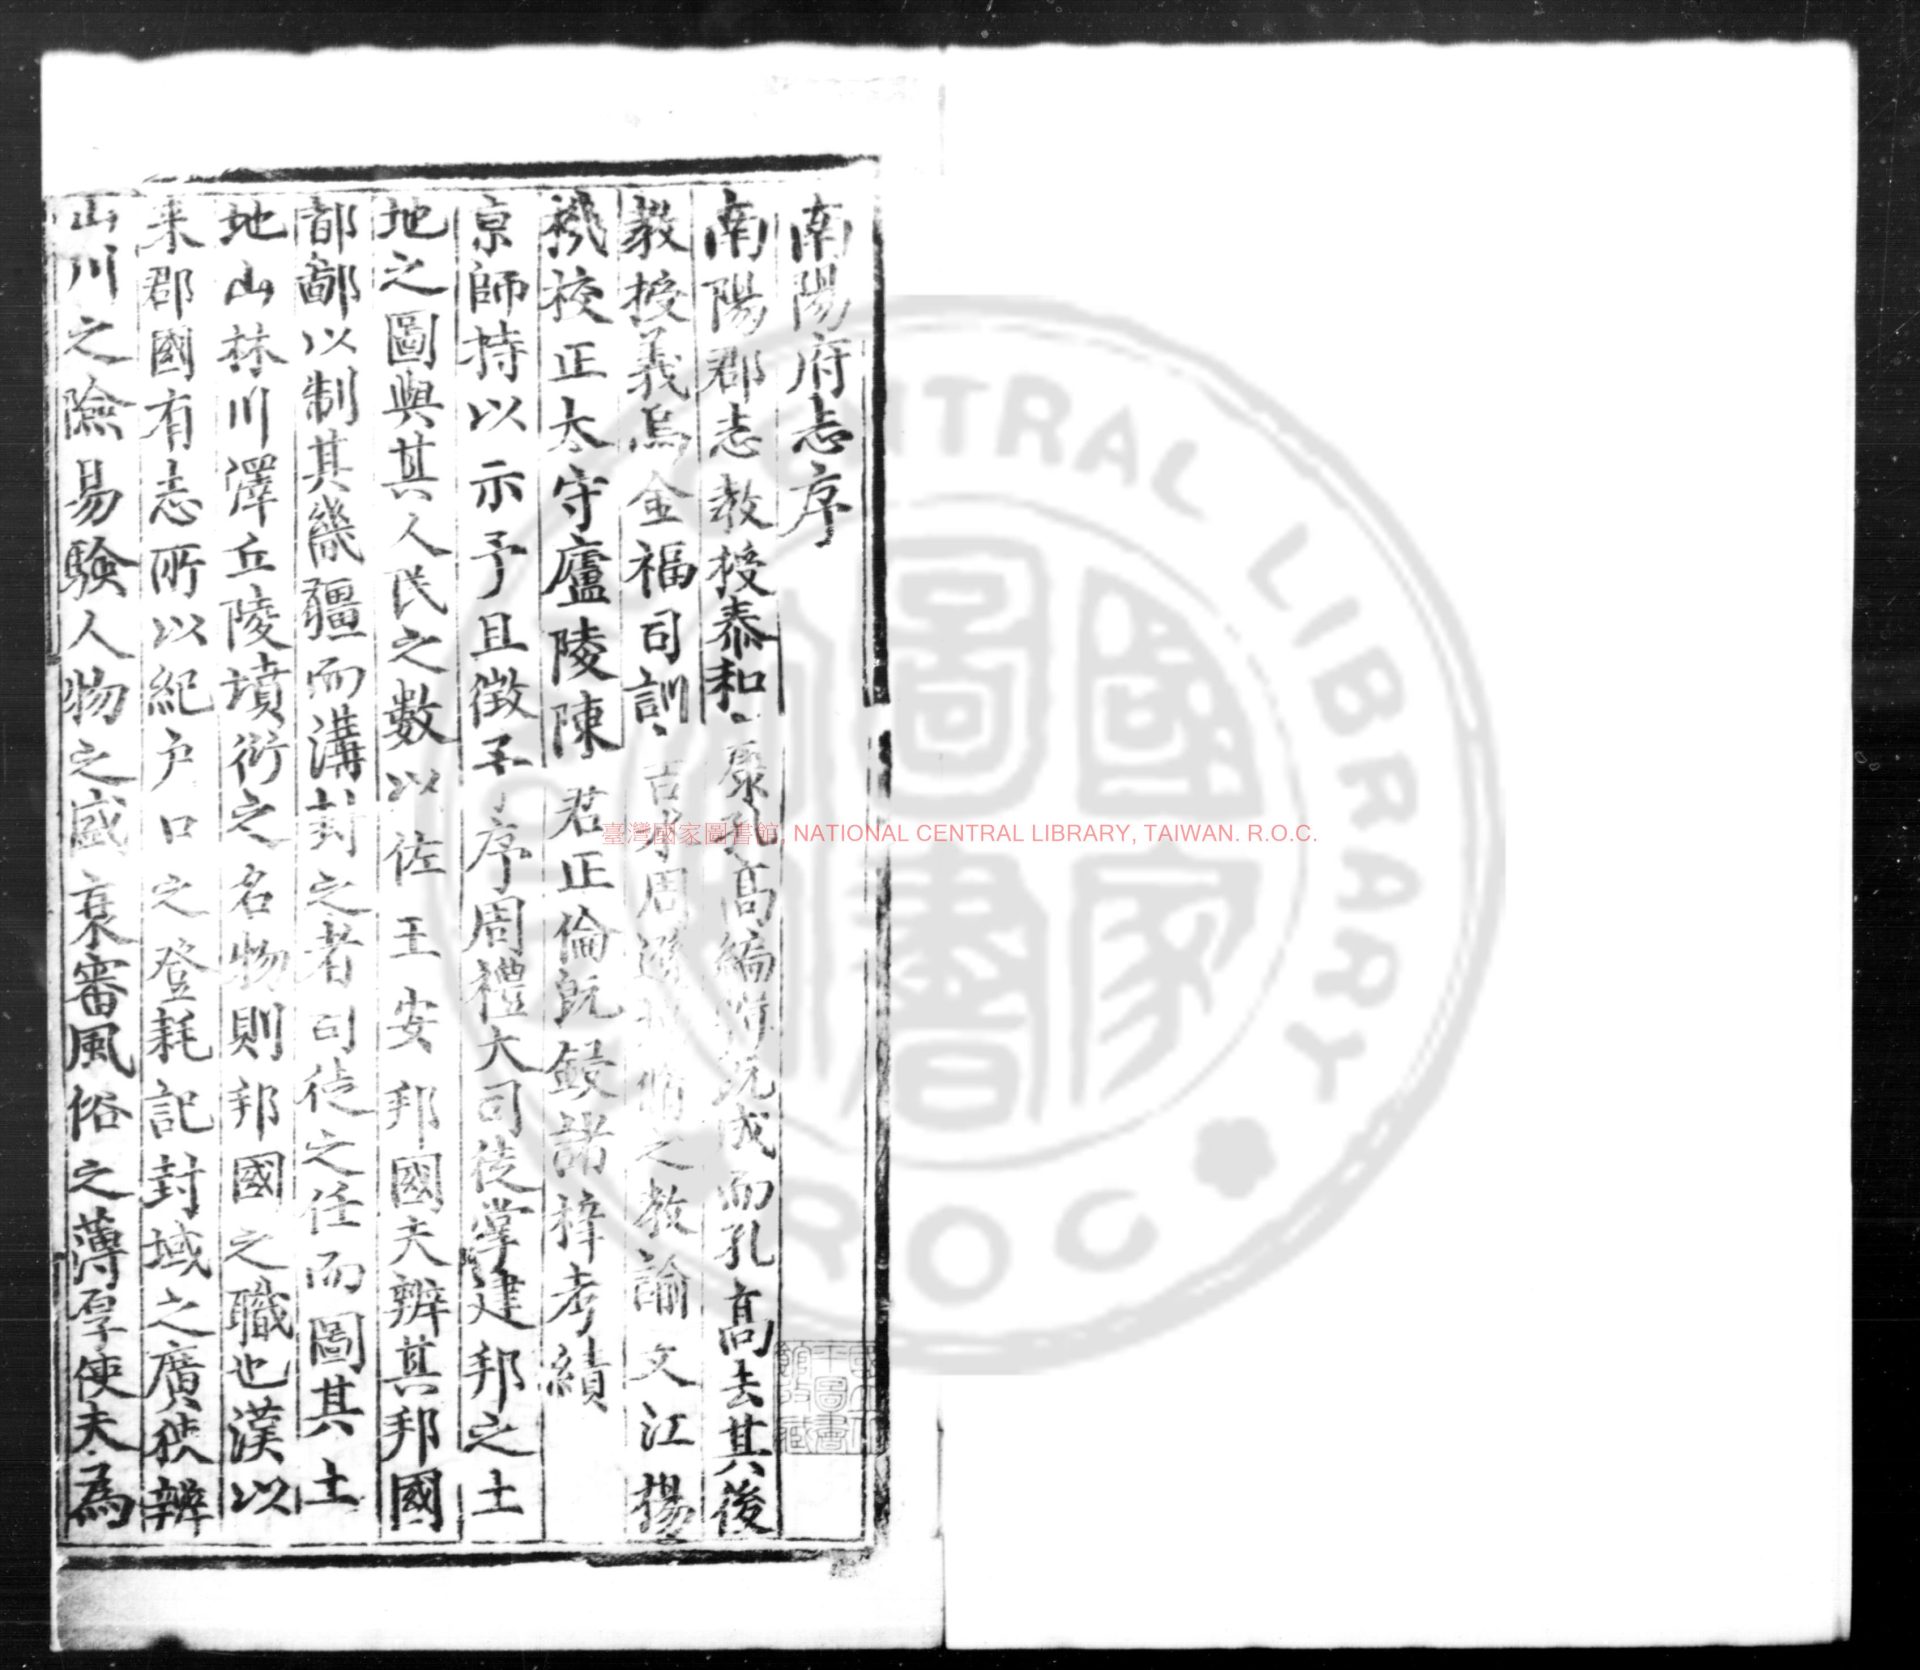 南陽府志序
南陽郡志教授泰和康孔高編脩既成而孔高去其後
教授義烏金福司訓周
之教諭文江楊
校正太守廬陵陳君正倫既鋟諸梓考績
京師持以示予且徵予序周禮大司徒掌建邦之土
地之圖與其人民之數以佐王安邦國夫辨其邦國
都鄙以制其畿疆而溝封之者司徒之任而圖其土
地山林川澤丘陵墳衍之名物則邦國之職也漢以
来郡國有志所以紀户口之登耗記封域之廣狹辨
山川之險易驗人物之盛衰審風俗之薄厚使夫為
臺灣國家圖書館, NATIONAL CENTRAL LIBRARY, TAIWAN. R.O.C.
CENTRAL LIBRARY
ROC
國家圖書